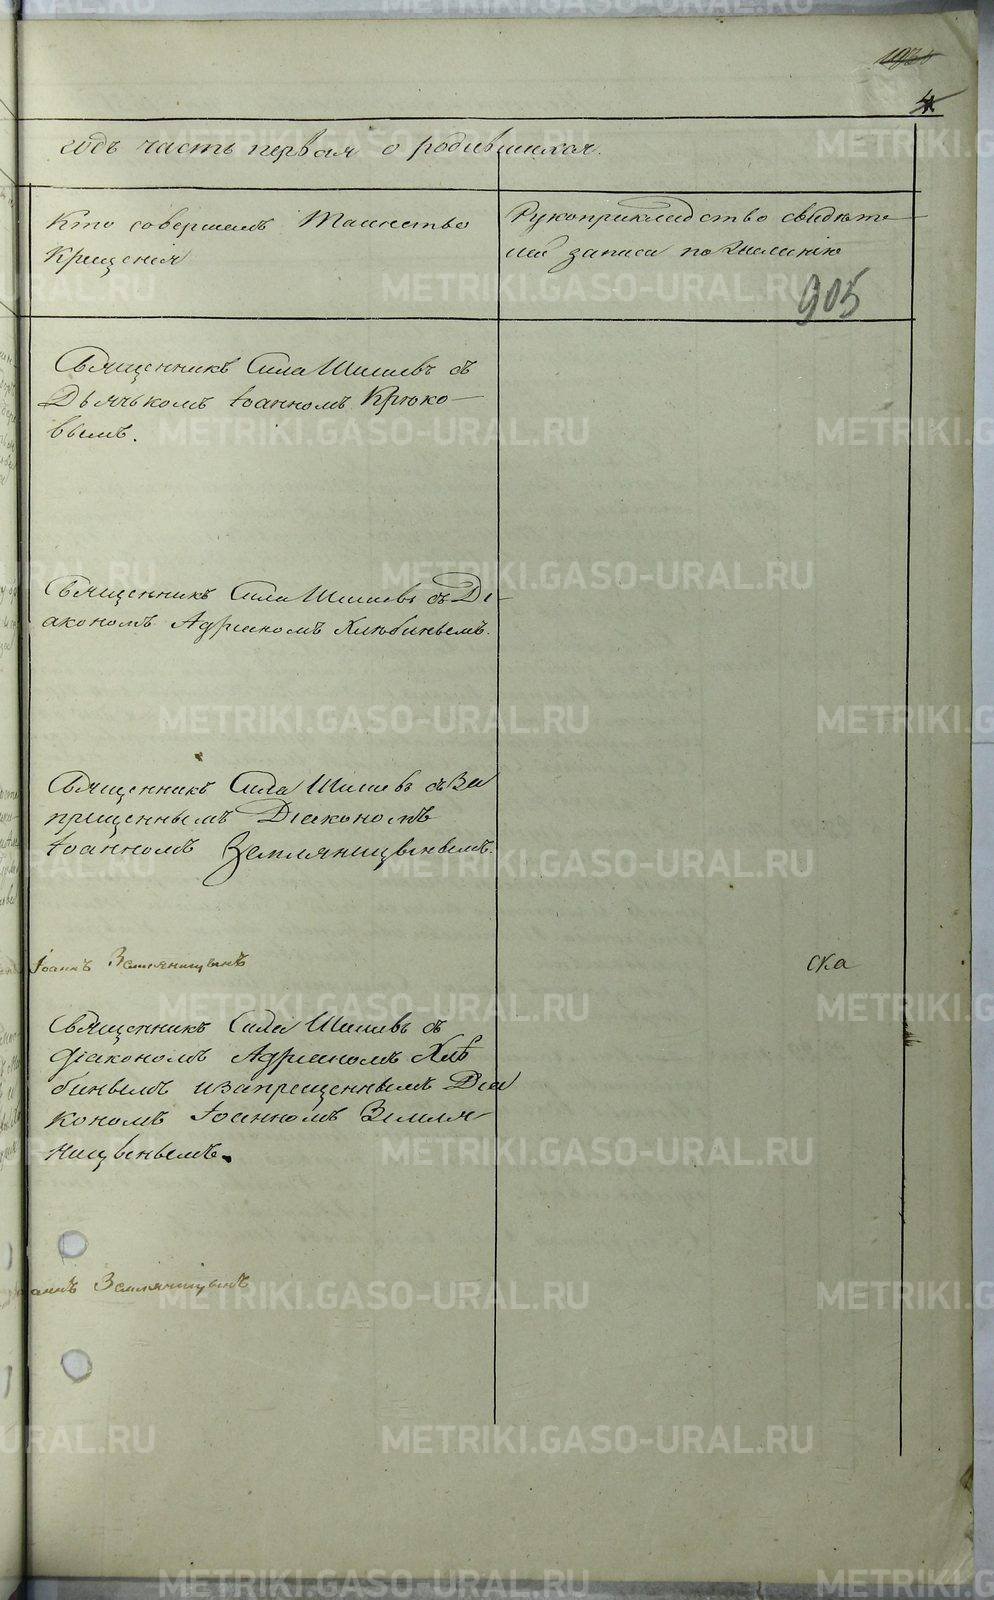 4
годъ часть первая о родившихся.
Кто совершалъ Таинство
Крещенія
Рукоприкладство свидѣте
лей записи по желанію
905
Священникъ Сила Шишевъ съ
Дьячькомъ Іоанномъ Крюко-
вымъ.
Священникъ Сила Шишевъ съ Ді-
акономъ Адріаномъ Хлѣбинымъ.
Священникъ Сила Шишевъ съ За
прещеннымъ Діакономъ
Іоанномъ Земляницынымъ.
Іоаннъ Земляницынъ
ска
Священникъ Сила Шишевъ съ
Діакономъ Адріаномъ Хлѣ
бинымъ и запрещеннымъ Діа
кономъ Іоанномъ Земля
ницынымъ.
аннъ Земляницынъ
METRIKI.GASO-URAL.RU